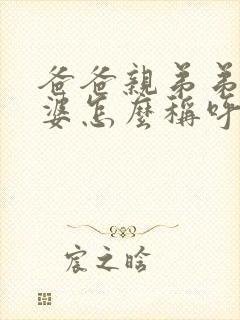 爸爸親弟弟
婆怎麼稱呼
宸之晗